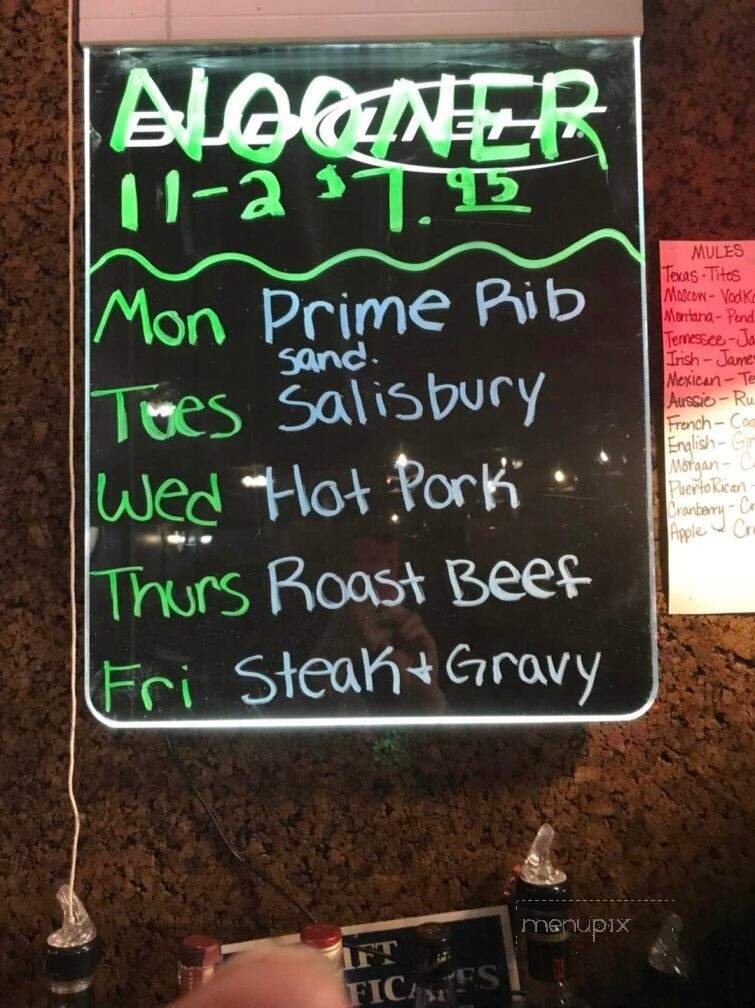 NOONER
BUD LIGHT
11-2 $7.95
Mon Prime Rib
sand.
Tues Salisbury
Wed Hot Pork
Thurs Roast Beef
Fri Steak + Gravy
MULES
Texas - Titos
Moscow - Vodka
Montana - Pend
Tennessee - Ja
Irish - Jame
Mexican - Te
Aussie - Ru
French - 
English - Gi
Morgan - C
Puerto Rican -
Cranberry - Cr
Apple - Cr
menupix